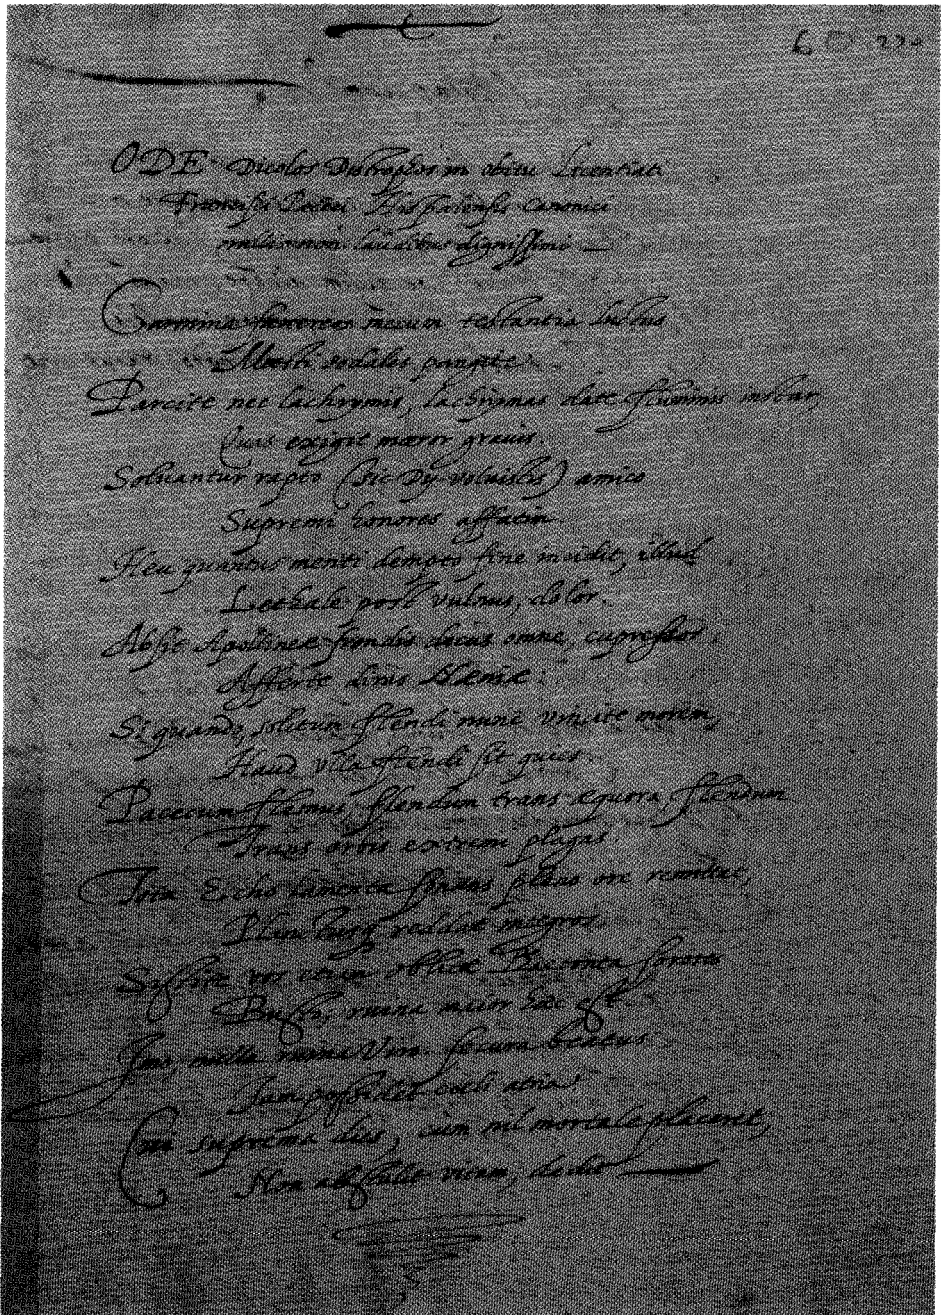 ODE Dicolos Distrophos in obitu Licentiati
Francisci Pacieci Hispalensis canonici
omnibus laudibus dignissimi
Carmina funereos mecum testantia luctus
Moesti sodales pangite.
Parcite nec lachrymis, lachrymas date fluminis instar,
Quas exigit moeror grauis.
Soluantur rapto (sic Dij voluistis) amico
Supremi honores affatim.
Heu quantus menti dempto fine incidit, illud
Lethale post vulnus, dolor.
Absit Apollineae frondis decus omne, cupressos,
Afferte dirus Naeniae:
Si quando, solitum flendi nunc vincite morem,
Haud vlla flendi sit quies.
Paciecum flemus, flendum trans aequora, flendum
Trans orbis extrem plagas
Tria Echo lamenta sonans pleno ore remittat,
Sistite vos vestrae oblitae Phaetontea sorores
Busti, ruina maior haec est.
Imo, nulla ruina viri secura beatus
Iam possidet coeli atria
Cui suprema dies, cum nil mortale placeret,
Non abstulit vitam, dedit